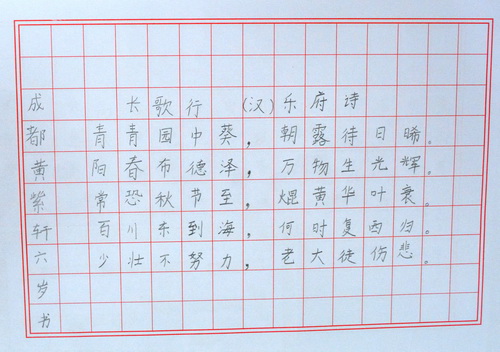 长歌行 (汉)乐府诗
青青园中葵，朝露待日晞。
阳春布德泽，万物生光辉。
常恐秋节至，焜黄华叶衰。
百川东到海，何时复西归。
少壮不努力，老大徒伤悲。
成都黄紫轩六岁书